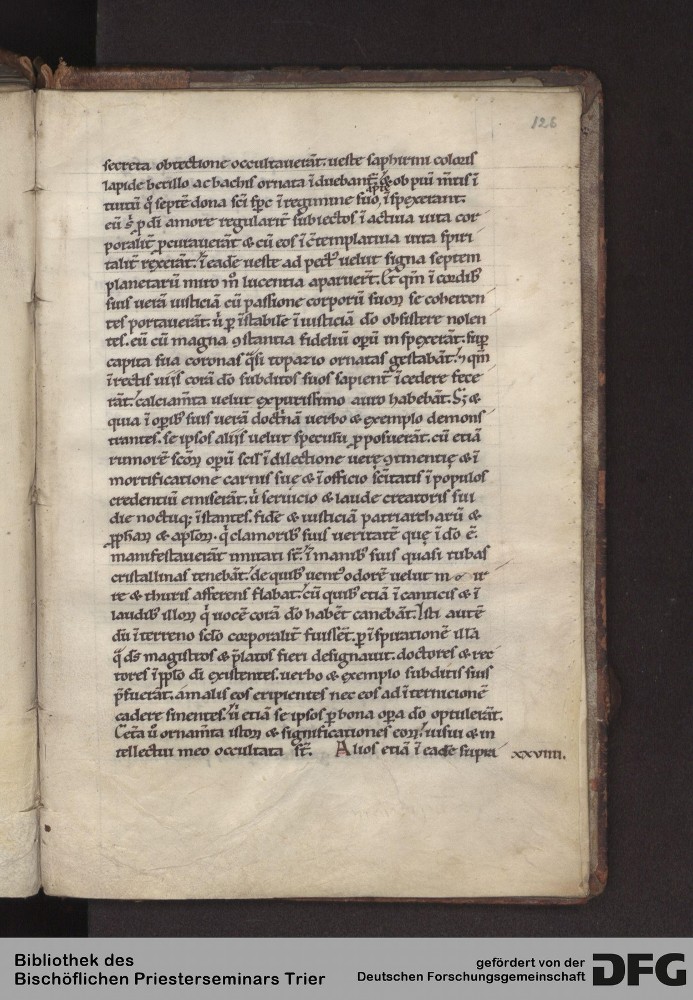 126
secreta obtectione occultauerāt. ueste saphirini coloris
lapide berillo ac bachis ornata īduebant̄. & ob piū m̄tis ī
tuitū q̊ septē dona sc̄i sp̄c ī regimine suo, īspexerant.
cū s̄ p di amore regularit̄ subiectos ī actiua uita cor
poralit̄ ꝓcurauerāt & cū eos ī cōtemplatiua uita spiri
talit̄ rexerāt. ī eadē ueste ad pect᷒ uelut signa septem
planetarū miro m̊ lucentia aparuer̄t. Et qm̄ ī cordib᷒
suis uerā iusticiā cū passione corporū suoꝝ se coherten
tes portauerāt. ꝑ īstabilē īiusticiā dō obsistere nolen
tes. cū cū magna ꝯstantia fideliū operū inspexerāt. sup̄
capita sua coronas q̄si topazio ornatas gestabāt. qm̄
ī rectis uiis corā dō subditos suos sapient̄ īcedere fece
rāt. calciam̄ta uelut ex purissimo auro habebāt. S; &
quia ī operib᷒ suis uerā doct̄nā uerbo & exemplo demons
trantes. se ipsos aliis uelut speculū ꝓposuerāt. cū etiā
rumorē sc̄oꝝ operū scil᷒ ī dilectione uerę ꝯtinentię & ī
mortificatione carnis suę & ī officio sc̄itatis ī populos
credentiū emiserāt. seruicio & laude creatoris sui
die noctuq; īstantes. fidē & iusticiā patriarcharū &
ꝓphaꝝ & ap̄loꝝ. q̇ clamorib᷒ suis ueritatē quę ī dō ē.
manifestauerāt imitati st̄. ī manib᷒ suis quasi tubas
cristallinas tenebāt. de quib᷒ uent᷒ odorē uelut m ir
re & thuris afferens flabat. cū quib᷒ etiā ī canticis & ī
laudib᷒ illoꝝ q̇ uocē corā dō habēt canebāt. Isti autē
dū ī terreno sc̄lo corporalit̄ fuissēt. ꝑ īspirationē illā
q̄ ds̄ magistros & p̄latos fieri designauit. doctores & rec
tores ī pp̄lo di existentes. uerbo & exemplo subditis suis
p̄fuerāt. a malis eos eripientes nec eos ad īternicionē
cadere sinentes. etiā se ipsos ꝑ bona opera dō optulerāt.
Cet̄a u̇ ornam̄ta istoꝝ & significationes eoꝝ. uisui & in
tellectui meo occultata st̄. Alios etiā ī eadē supra xxviiii.
Bibliothek des
Bischöflichen Priesterseminars Trier
gefördert von der
Deutschen Forschungsgemeinschaft
DFG